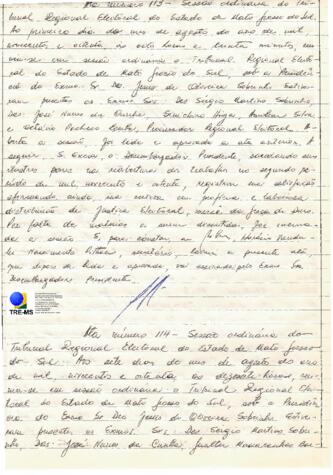 Ata número 113 - Sessão ordinária do Tri-
bunal Regional Eleitoral do Estado de Mato Grosso do Sul.
Ao primeiro dia do mês de agosto do ano de mil
novecentos e oitenta, às oito horas e trinta minutos, reu-
niu-se em sessão ordinária o Tribunal Regional Eleito-
ral do Estado de Mato Grosso do Sul, sob a Presidên-
cia do Exmo Sr. Des. Jesus de Oliveira Sobrinho. Estive-
ram presentes os Exmos Srs. Des. Sérgio Martins Sobrinho,
Des. José Nunes da Cunha,
e Octávio Pacheco Procurador Regional Eleitoral. A-
berta a sessão, foi lida e aprovada a ata anterior. A
seguir S. Excia. o Desembargador Presidente,
ilustres pares na reabertura dos trabalhos no segundo pe-
ríodo de mil novecentos e oitenta,
distribuição de Justiça Eleitoral,
Por falta de matéria a serem discutidas, foi encerra-
da a sessão. E, para constar, eu
Nascimento secretário, lavrei a presente ata,
que depois de lida e aprovada, vai assinada pelo Exmo Sr.
Desembargador Presidente.
TRE-MS
Ata número 114 - Sessão ordinária do
Tribunal Regional Eleitoral do Estado de Mato Grosso
do Sul. Aos sete dias do mês de agosto do ano
de mil novecentos e oitenta, às dezessete horas, reu-
niu-se em sessão ordinária o Tribunal Regional Elei-
toral do Estado de Mato Grosso do Sul, sob a Presidên-
cia do Exmo Sr. Des. Jesus de Oliveira Sobrinho. Estive-
ram presentes os Exmos. Srs. Des. Sérgio Martins Sobri-
nho, Des. José Nunes da Cunha,